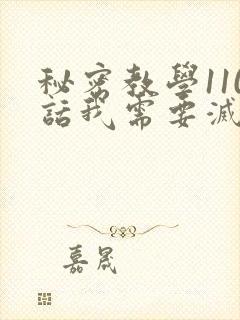 秘密教學110
話我需要滅
嘉晟